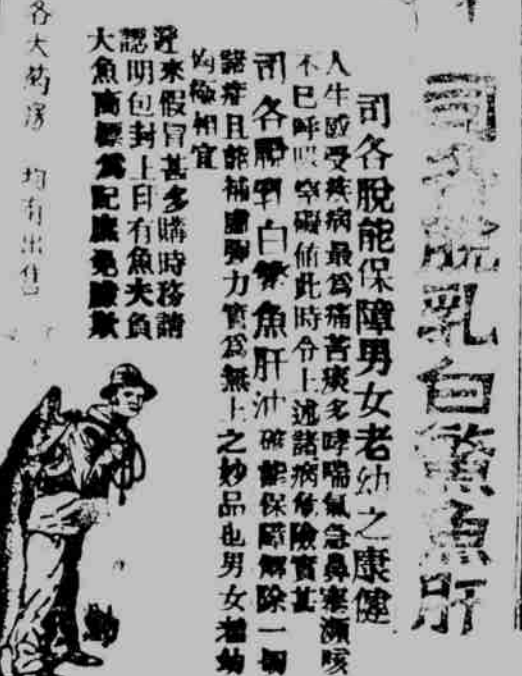 司各脫乳白鰵魚肝
司各脫能保障男女老幼之康健
人生感受疾病最爲痛苦痰多哮喘氣急鼻塞瀕咳
不已呼吸窒礙値此時令上述諸病危險實甚
司各脫乳白鰵魚肝油確能保障解除一切
諸症且能補虛彌力實爲無上之妙品也男女老幼
均極相宜
近來假冒甚多購時務請
認明包封上印有魚夫負
大魚商標爲記庶免欺
各大药房 均有出售